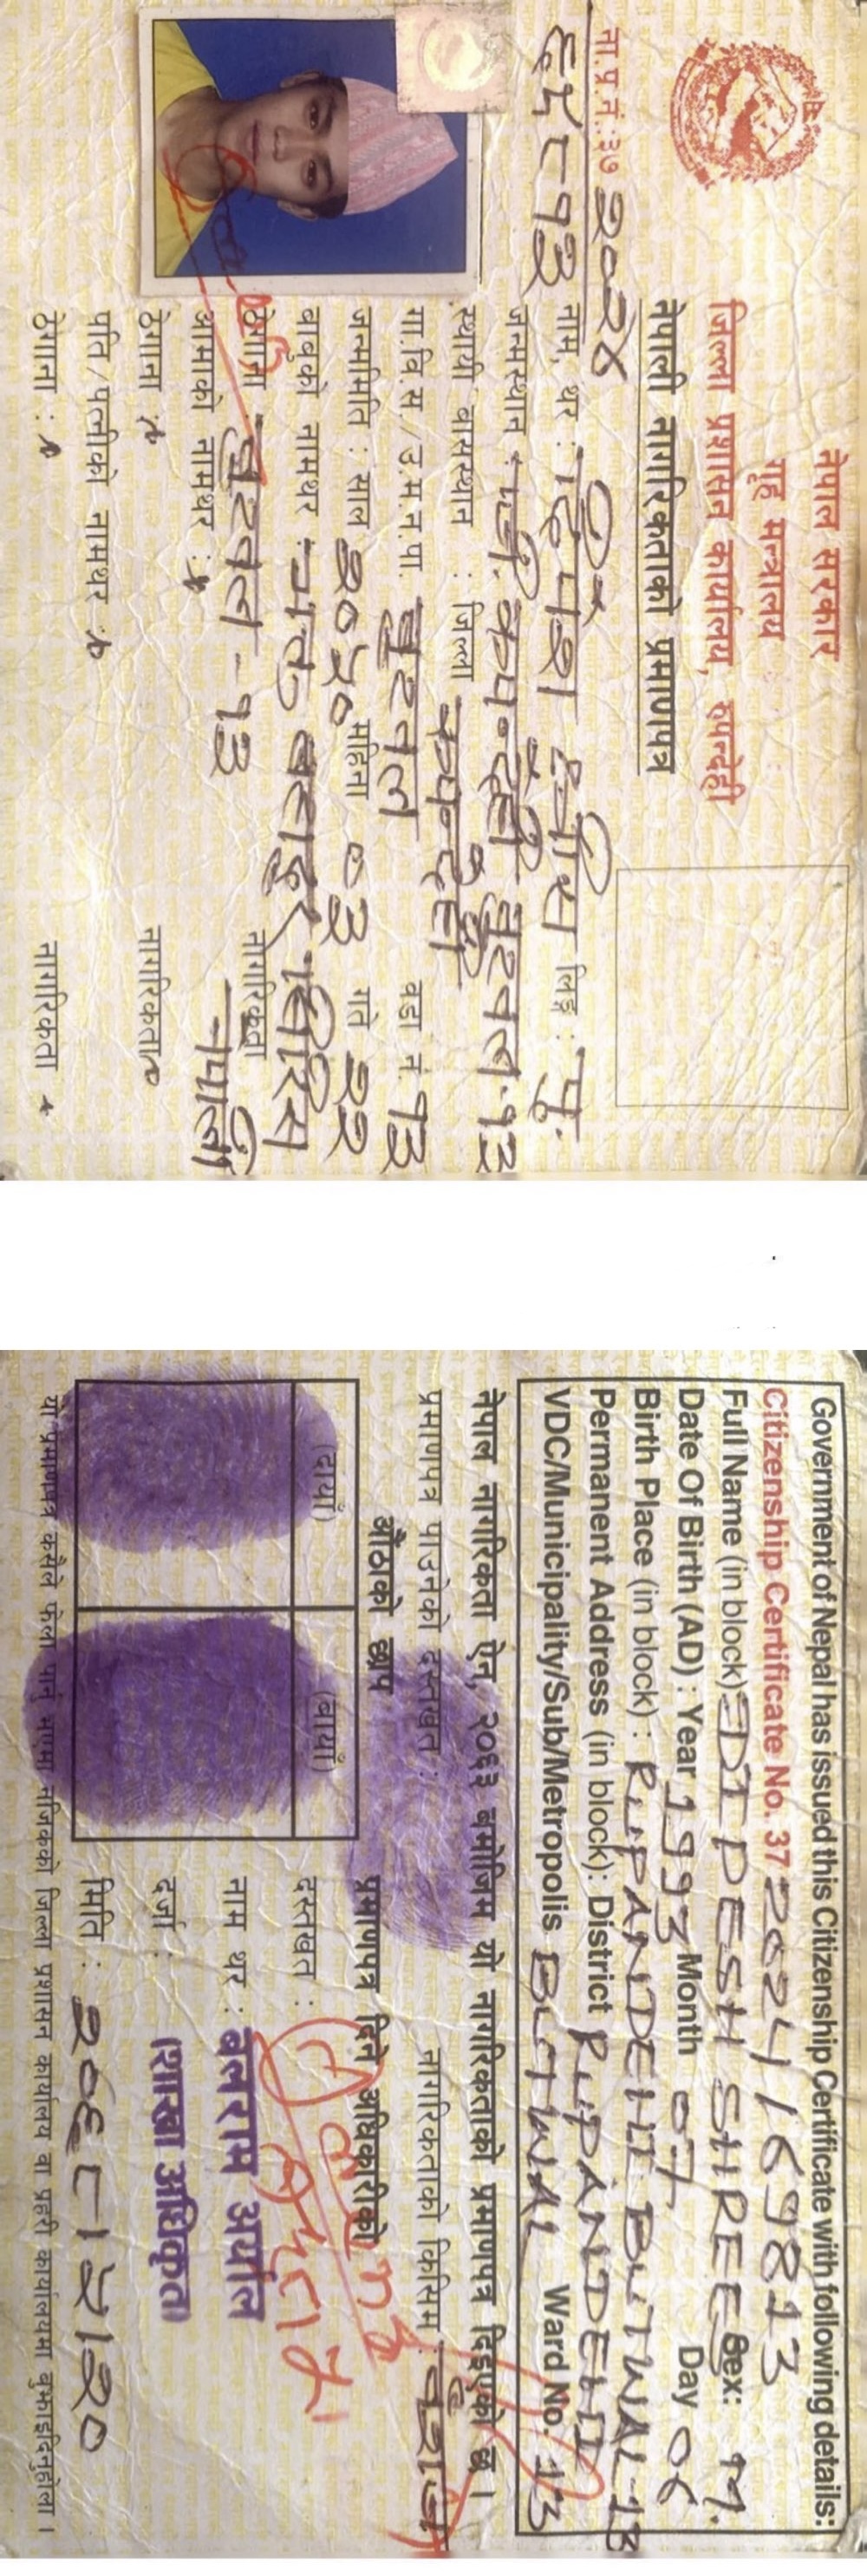 नेपाल सरकार
गृह मन्त्रालय
जिल्ला प्रशासन कार्यालय, रुपन्देही
नेपाली नागरिकताको प्रमाणपत्र
ना.प्र.नं.:३७
नाम, थर : दिपेश श्रीस लिङ्ग : पु.
जन्मस्थान : जि. रूपन्देही बुटवल-१३
स्थायी वासस्थान : जिल्ला रूपन्देही
गा.वि.स./उ.म.न.पा. बुटवल वडा नं. १३
जन्ममिति : साल २०५० महिना ०३ गते २२
बाबुको नामथर : बहादुर सिरिस
ठेगाना : बुटवल - १३ नागरिकता नेपाली
आमाको नामथर :
ठेगाना : नागरिकता
पति/पत्नीको नामथर
ठेगाना : नागरिकता
Government of Nepal has issued this Citizenship Certificate with following details:
Citizenship Certificate No. 37
Full Name (in block) DIPESH SHREES Sex: M.
Date Of Birth (AD) : Year 1993 Month 07 Day 06
Birth Place (in block) : RUPANDEHI BUTWAL-13
Permanent Address (in block): District RUPANDEHI
VDC/Municipality/Sub/Metropolis BUTWAL Ward No. 13
नेपाल नागरिकता ऐन, २०६३ बमोजिम यो नागरिकताको प्रमाणपत्र दिइएको छ ।
प्रमाणपत्र पाउनेको दस्तखत : नागरिकताको किसिम : वंशज
औंठाको छाप
(दायाँ) (बायाँ)
प्रमाणपत्र दिने अधिकारीको
दस्तखत :
नाम थर : बलराम अर्याल
दर्जा : शाखा अधिकृत
मिति : २०६८।५।२०
यो प्रमाणपत्र कसैले फेला पारे नजिकको जिल्ला प्रशासन कार्यालय वा प्रहरी कार्यालयमा बुझाइदिनुहोला ।